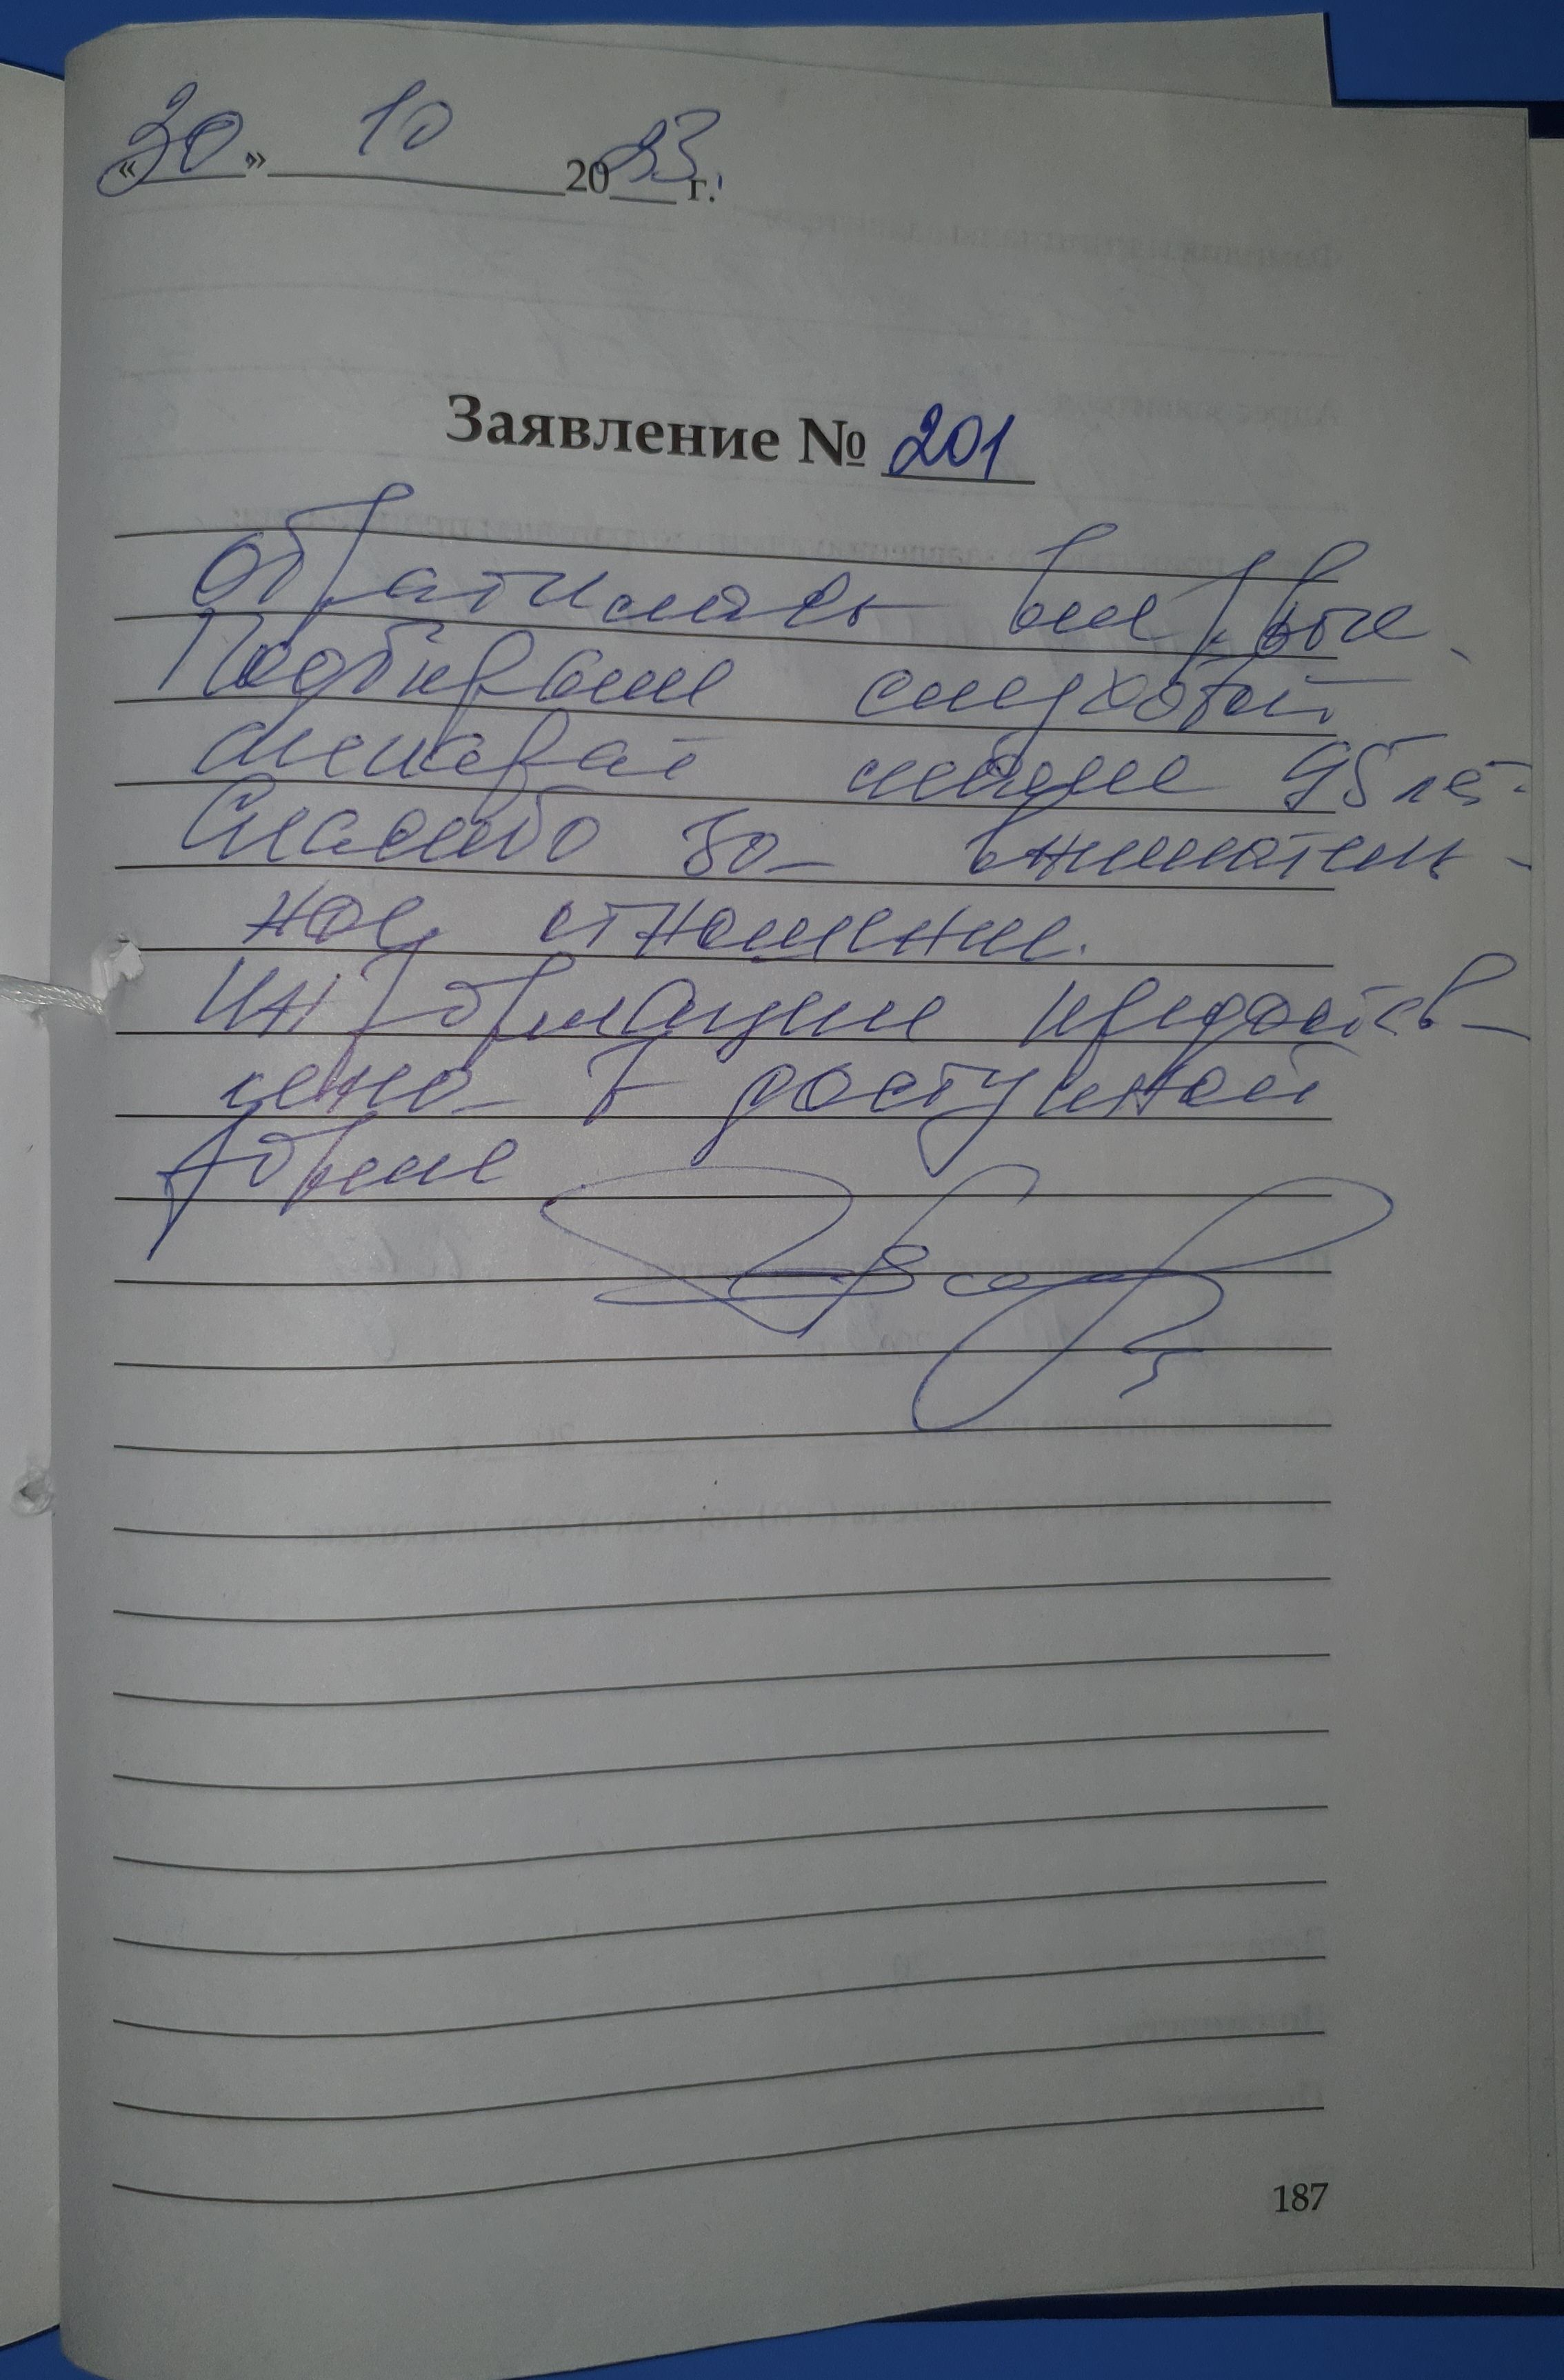 «30» 10 2023 г.
Заявление № 201
Обратились впервые.
Подбирали слуховой
аппарат маме 95 лет.
Спасибо за вниматель-
ное отношение.
Информация предостав-
лена в доступной
форме
187